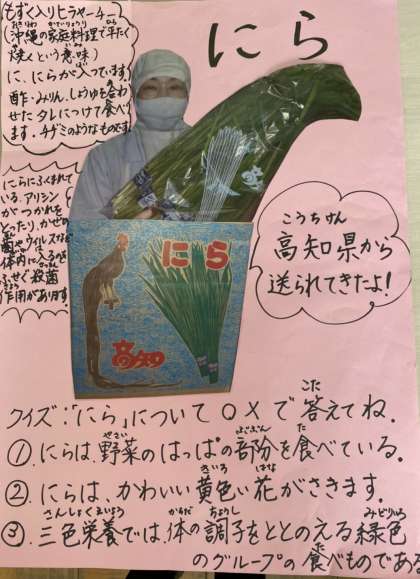 にら
もずく入りヒラヤーチー
(沖縄の家庭料理で平たく
焼くという意味)
に、にらが入っています。
酢・みりん、しょうゆを合わ
せたタレにつけて食べ
ます。チヂミのようなものです。
にらにふくまれて
いる、アリシン
がつかれを
とったり、かぜの
菌やウイルスなど
体内に入るのを
ふせぐ殺菌
作用があります。
こうちけん
高知県から
送られてきたよ!
にら
高知
クイズ:「にら」について○×で答えてね.
①.にらは、野菜のはっぱの部分を食べている.
②.にらは、かわいい黄色い花がさきます.
③.三色栄養では、体の調子をととのえる緑色
のグループの食べものである